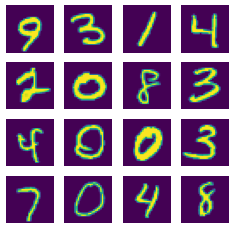 9 3 1 4
2 0 8 3
4 0 0 3
7 0 4 8